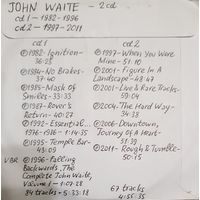 JOHN WAITE - 2cd
cd 1 - 1982 - 1996
cd 2 - 1997 - 2011
cd 1
Ⓟ1982 Ignition-
36:25
Ⓟ1984-No Brakes-
37:40
Ⓟ1985-Mask Of
Smiles-33:33
Ⓟ1987-Rover's
Return-40:27
Ⓟ1992-Essential...
1976-1986-1:14:35
Ⓟ1995-Temple Bar-
43:09
VBR Ⓟ1996-Falling
Backwards, The
Complete John Waite,
Volume 1-1:07:28
84 tracks-5:33:18
cd 2
Ⓟ1997-When You Were
Mine-51:10
Ⓟ2001-Figure In A
Landscape-48:47
Ⓟ2001-Live & Rare Tracks-
59:04
Ⓟ2004-The Hard Way-
34:38
Ⓟ2006-Downtown,
Journey Of A Heart-
51:39
Ⓟ2011-Rough & Tumble-
50:15
67 tracks
4:55:35